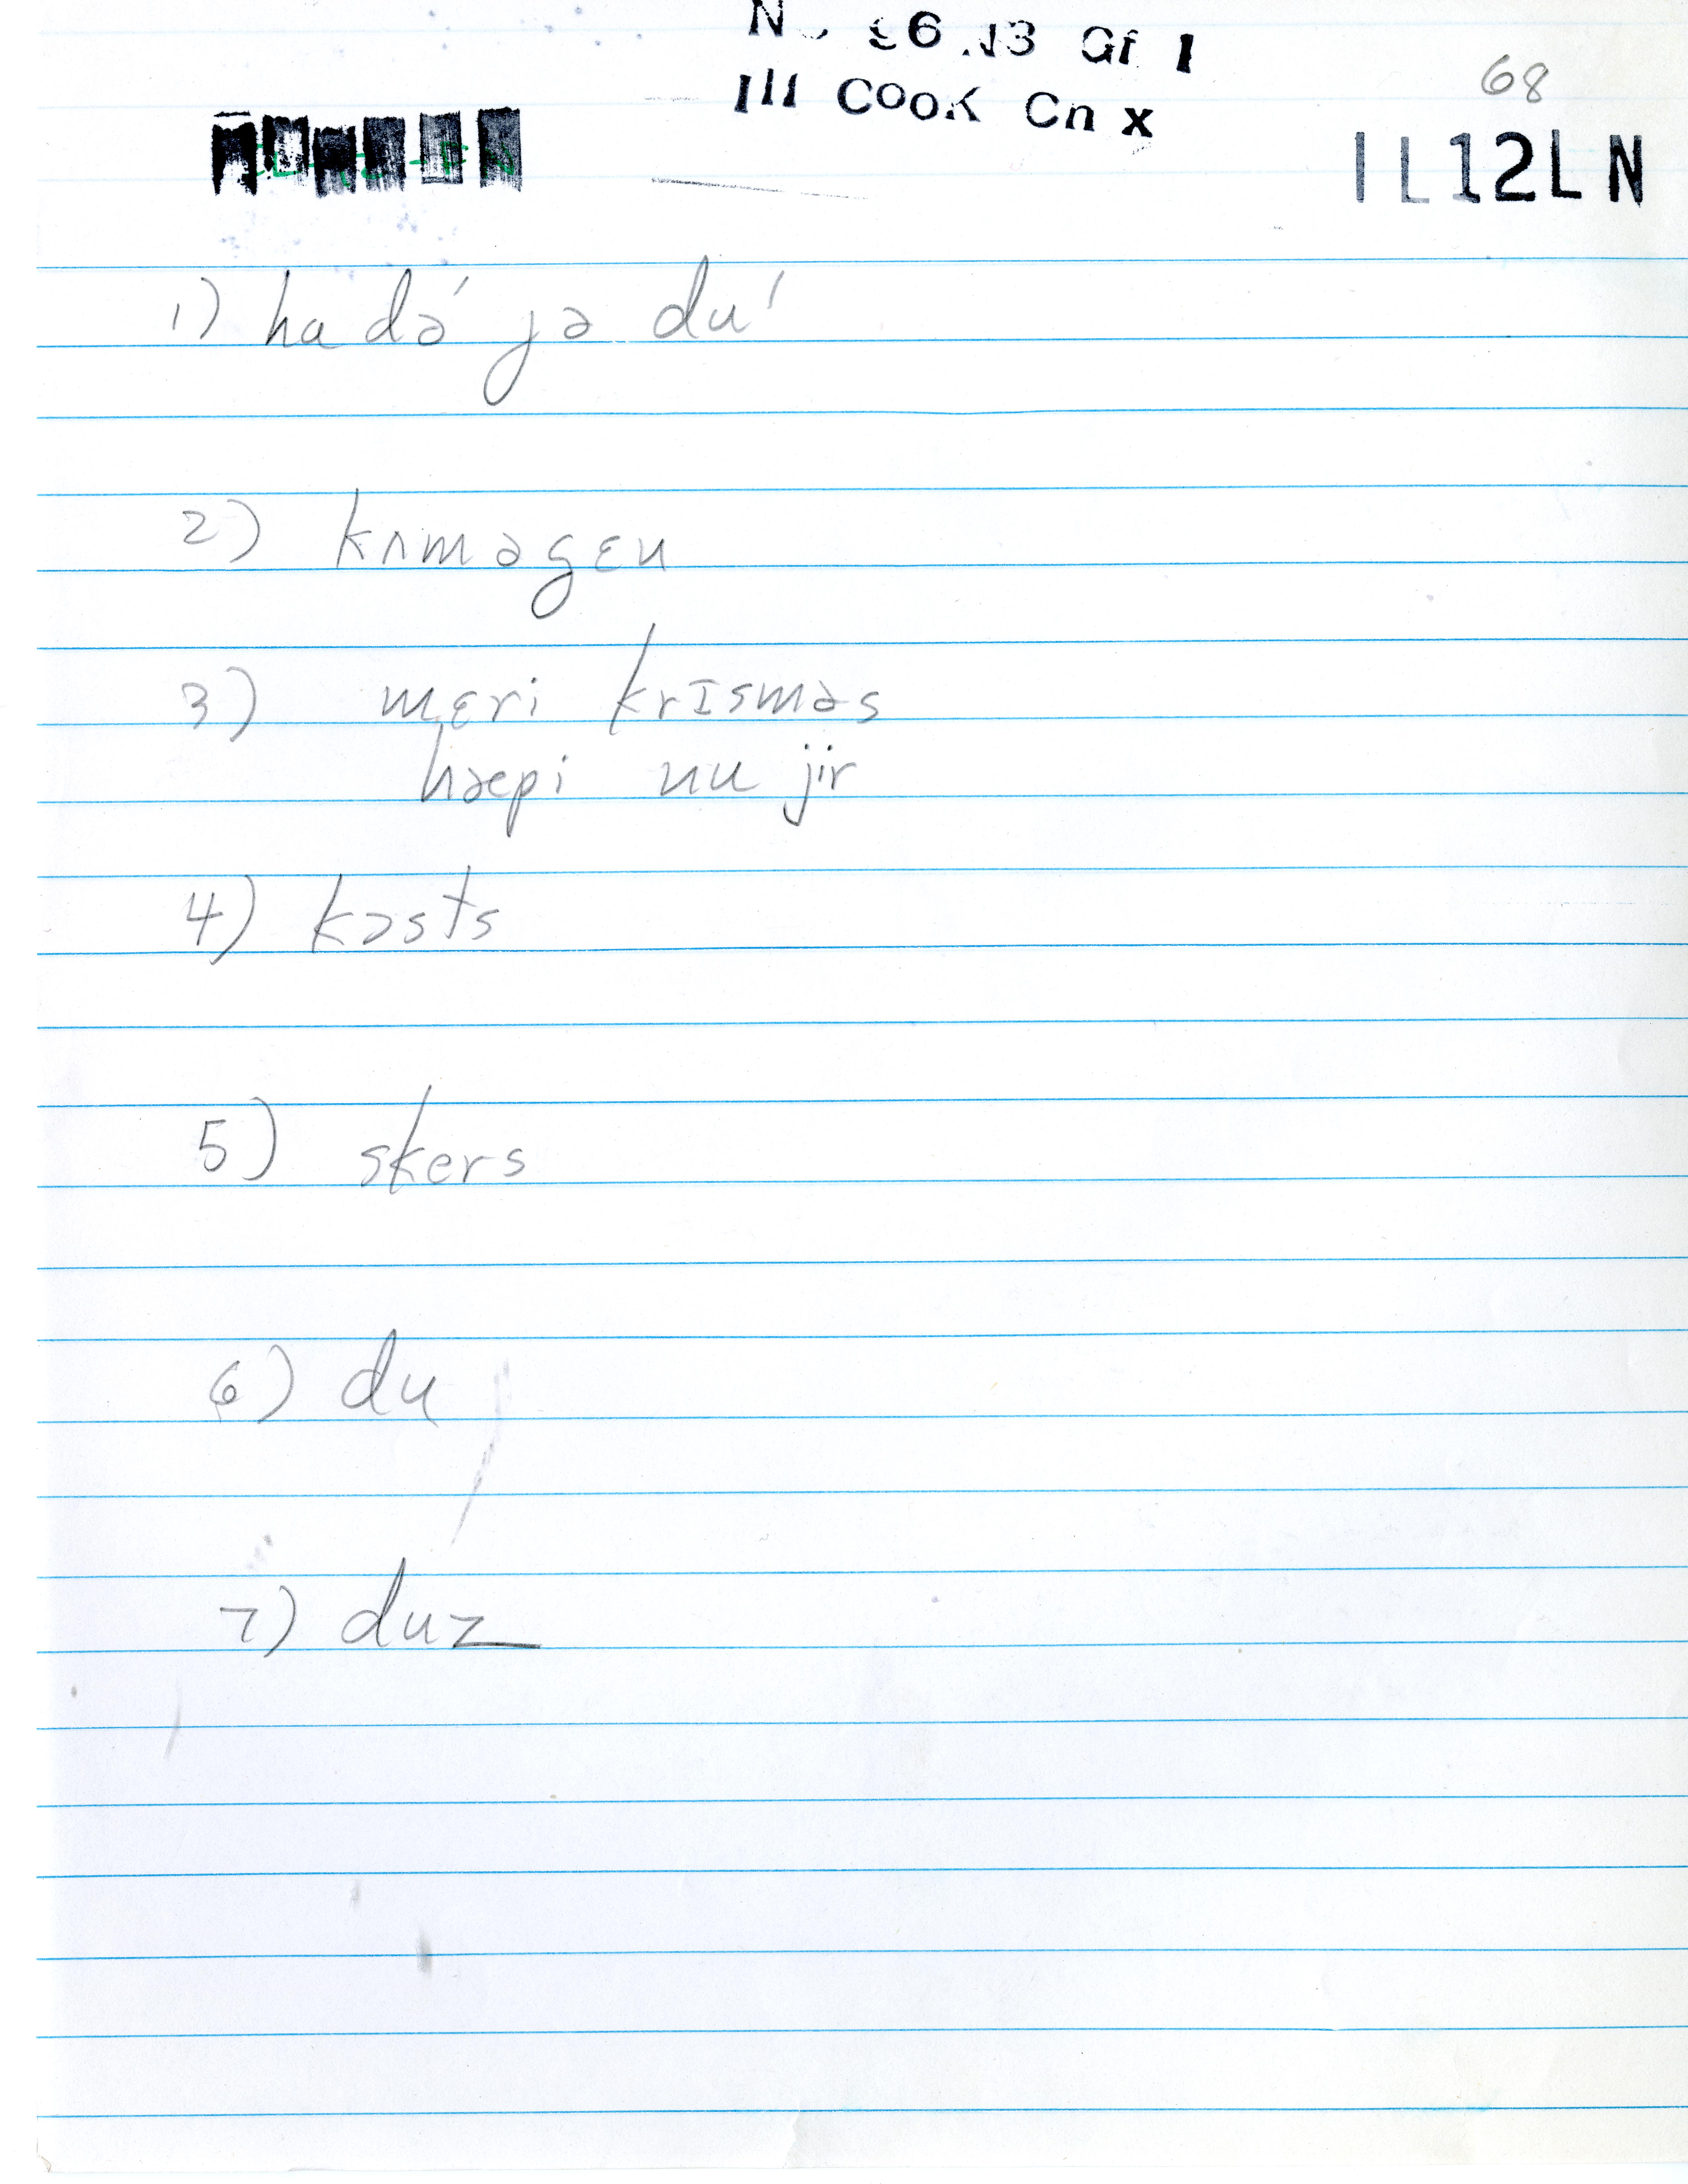 Ill Cook Cn x
68
IL12LN
1) ha də́ jə du'
2) kʌməgɛn
3) mɛri krɪsməs
hæpi nu jir
4) kɔsts
5) skers
6) du
7) duz